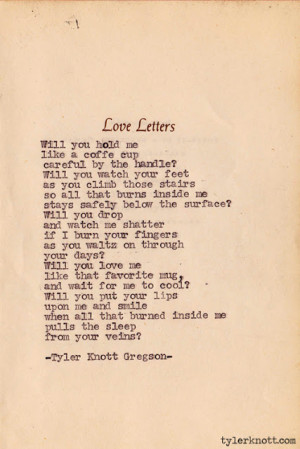 Love Letters
Will you hold me
like a coffe cup
careful by the handle?
Will you watch your feet
as you climb those stairs
so all that burns inside me
stays safely below the surface?
Will you drop
and watch me shatter
if I burn your fingers
as you waltz on through
your days?
Will you love me
like that favorite mug,
and wait for me to cool?
Will you put your lips
upon me and smile
when all that burned inside me
pulls the sleep
from your veins?
-Tyler Knott Gregson-
tylerknott.com